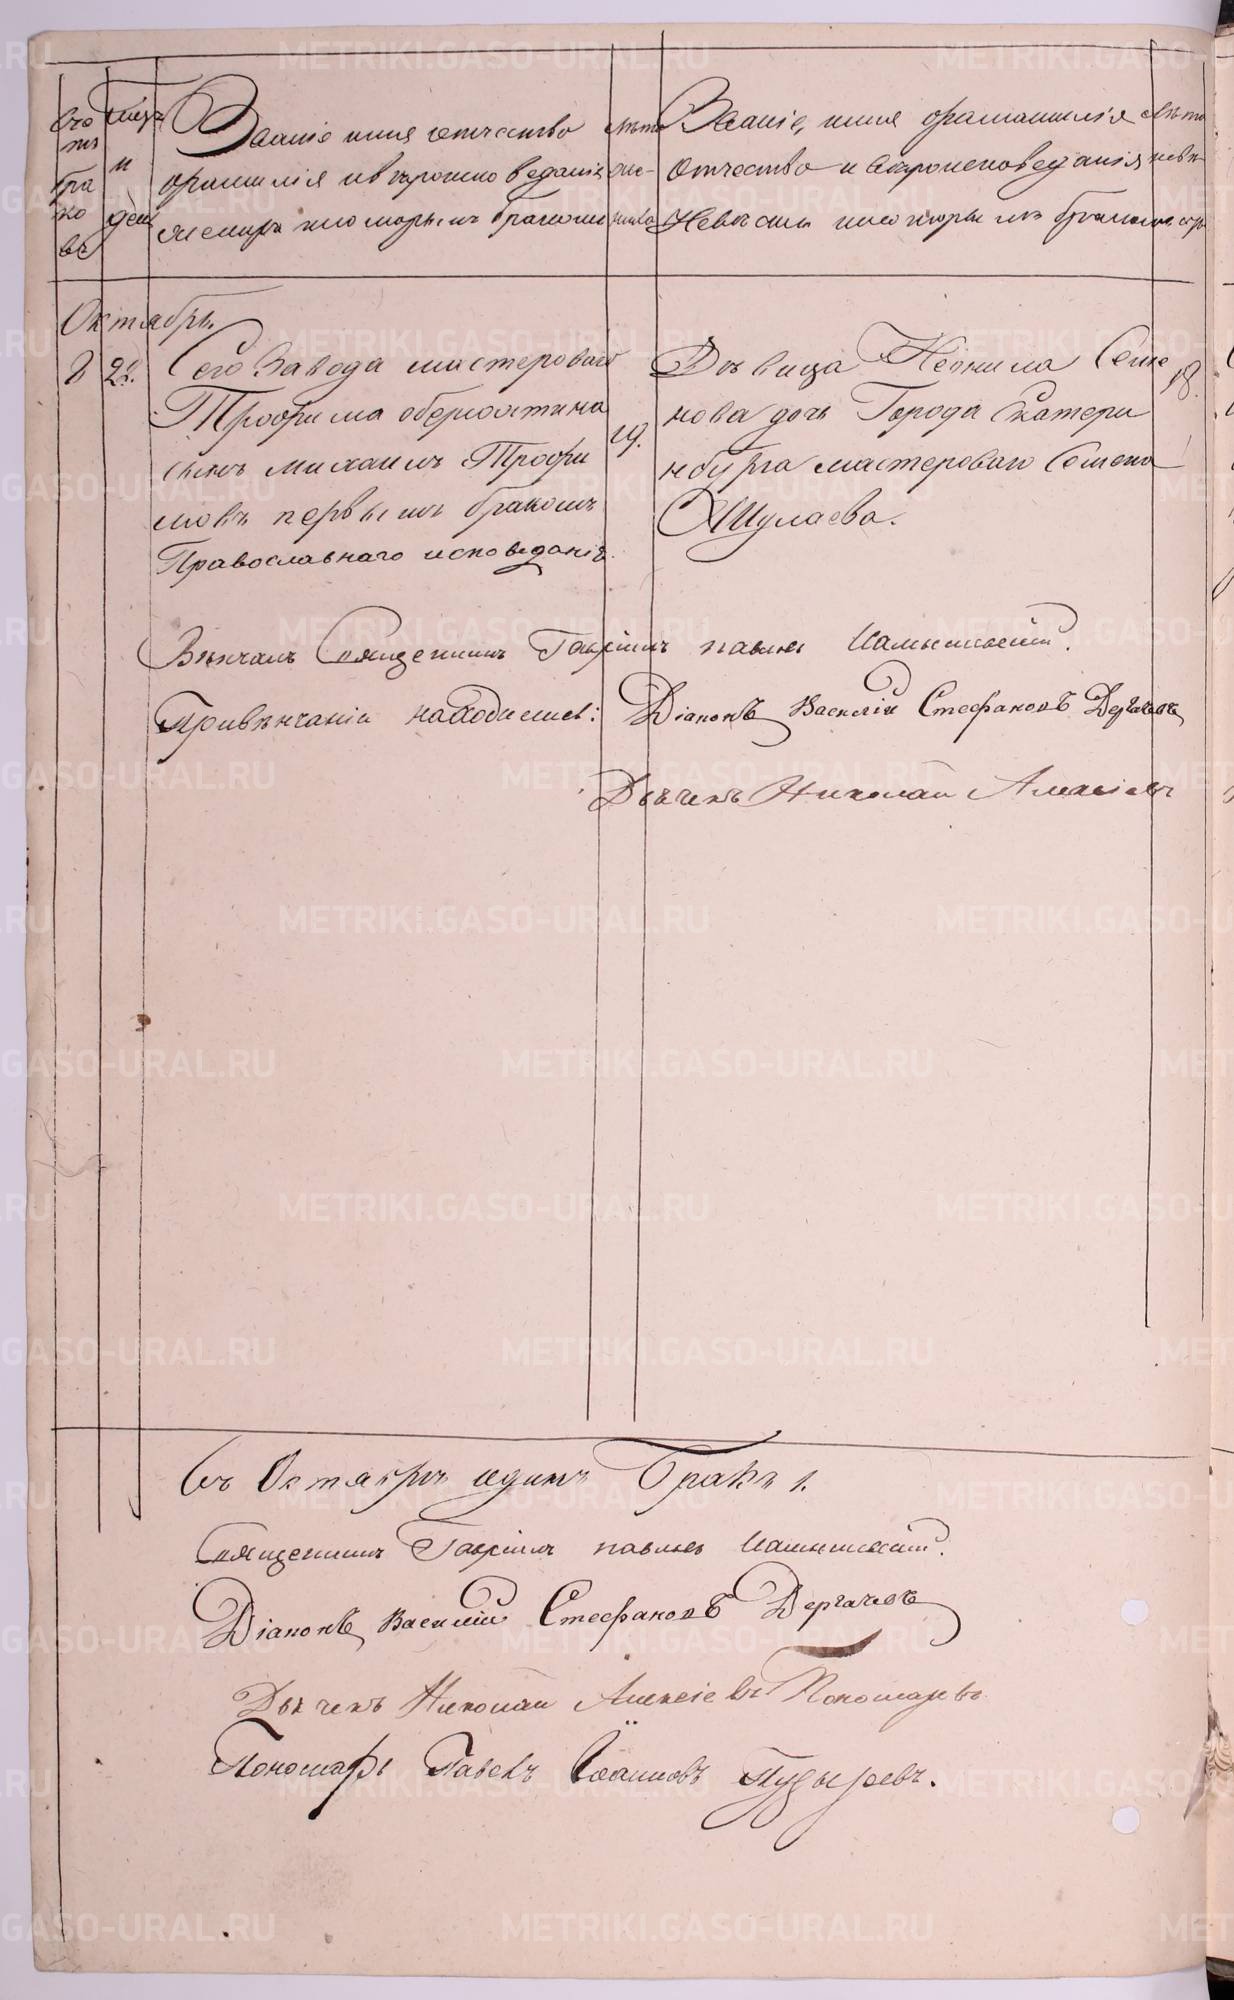 Счетъ браковъ
Мѣсяцъ и день
Званіе имя отчество
фамилія и вѣроисповеданія
Жениха и которымъ бракомъ
Лѣта жениха
Званіе, имя фамилія
Отчество и вѣроисповеданія
Невѣсты и которымъ бракомъ
Лѣта невѣсты
Октябрь
8 28.
Сего Завода мастероваго
Трофима
сынъ Михаилъ Трофи
мовъ первымъ бракомъ
Православнаго исповеданія.
19.
Дѣвица Неонила Семе
нова дочь Города Екатери
нбурга мастероваго Семена
Шулаева.
18.
Вѣнчалъ Священникъ Гавріилъ Павловъ
При вѣнчаніи находились: Діаконъ Василій Стефановъ Дергачевъ
Дьячекъ Николай Алексіевъ
Въ Октябрѣ одинъ Бракъ 1.
Священникъ Гавріилъ Павловъ
Діаконъ Василій Стефановъ Дергачевъ
Дьячекъ Николай Алексіевъ Пономаревъ
Пономарь Павелъ Іоанновъ Пузыревъ.
METRIKI.GASO-URAL.RU